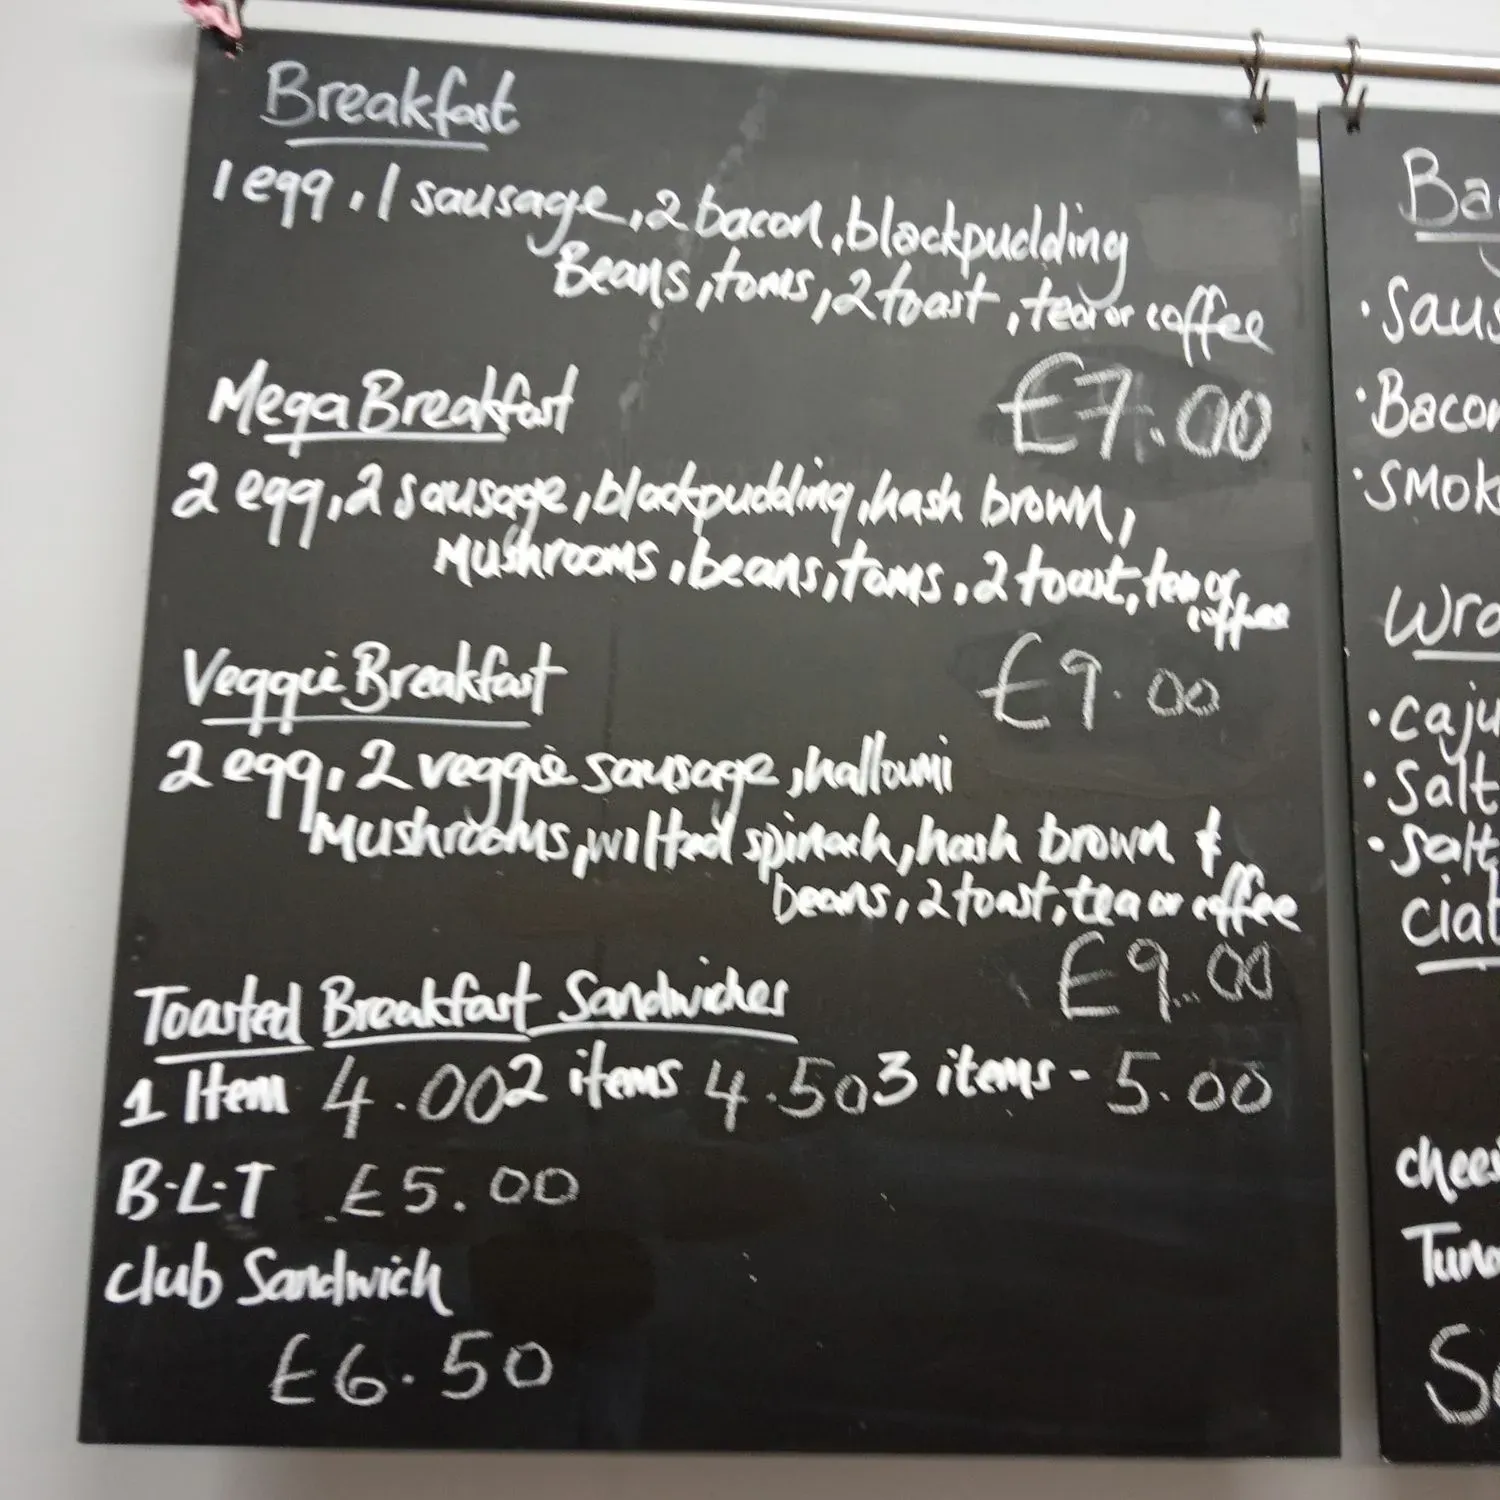 Breakfast
1 egg, 1 sausage, 2 bacon, blackpudding
Beans, toms, 2 toast, tea or coffee
£7.00
Mega Breakfast
2 egg, 2 sausage, blackpudding, hash brown,
Mushrooms, beans, toms, 2 toast, tea or
coffee
£9.00
Veggie Breakfast
2 egg, 2 veggie sausage, halloumi
Mushrooms, wilted spinach, hash brown &
beans, 2 toast, tea or coffee
£9.00
Toasted Breakfast Sandwiches
1 Item 4.00 2 items 4.50 3 items - 5.00
B-L-T £5.00
Club Sandwich
£6.50
Ba
• Saus
• Bacon
• Smok
Wra
• Caju
• Salt
• Salt
Ciab
chees
Tuna